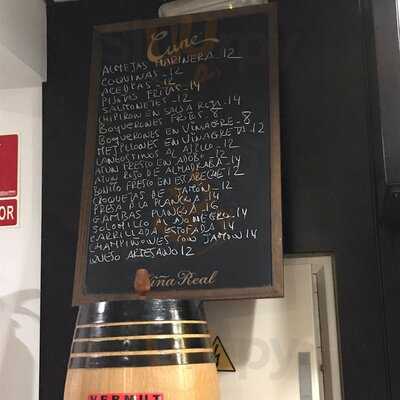 Cune
ALMEJAS MARINERA_12
COQUINAS_12
ACEDIAS_12
PIJOTAS FRITAS_14
SALMONETES_12
CHIPIRON EN SALSA ROSA_14
BOQUERONES FRITOS_8
BOQUERONES EN VINAGRE_8
MEJILLONES EN VINAGRETA_12
LANGOSTINOS AL AJILLO_12
ATUN FRESCO EN ADOBO_12
ATUN ROJO DE ALMADRABA_14
BONITO FRESCO EN ESCABECHE_12
CROQUETAS DE JAMÓN_12
PRESA A LA PLANCHA_14
GAMBAS PLANCHA_16
SOLOMILLO AL AJO NEGRO_14
CARRILLADA ESTOFADA_14
CHAMPIÑONES CON JAMON_14
QUESO ARTESANO_12
Viña Real
VERMUT
OR